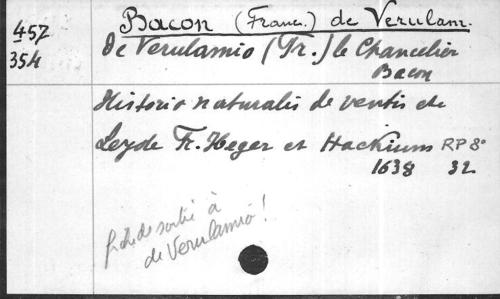 Bacon (Franc.) de Verulam.
457
354
de Verulamio (Fr.) le Chancelier
Bacon
Historia naturalis de ventis etc
Leyde Fr. Heger et Hackium RP 8°
1638 32
fiche de sortie à
de Verulamio!